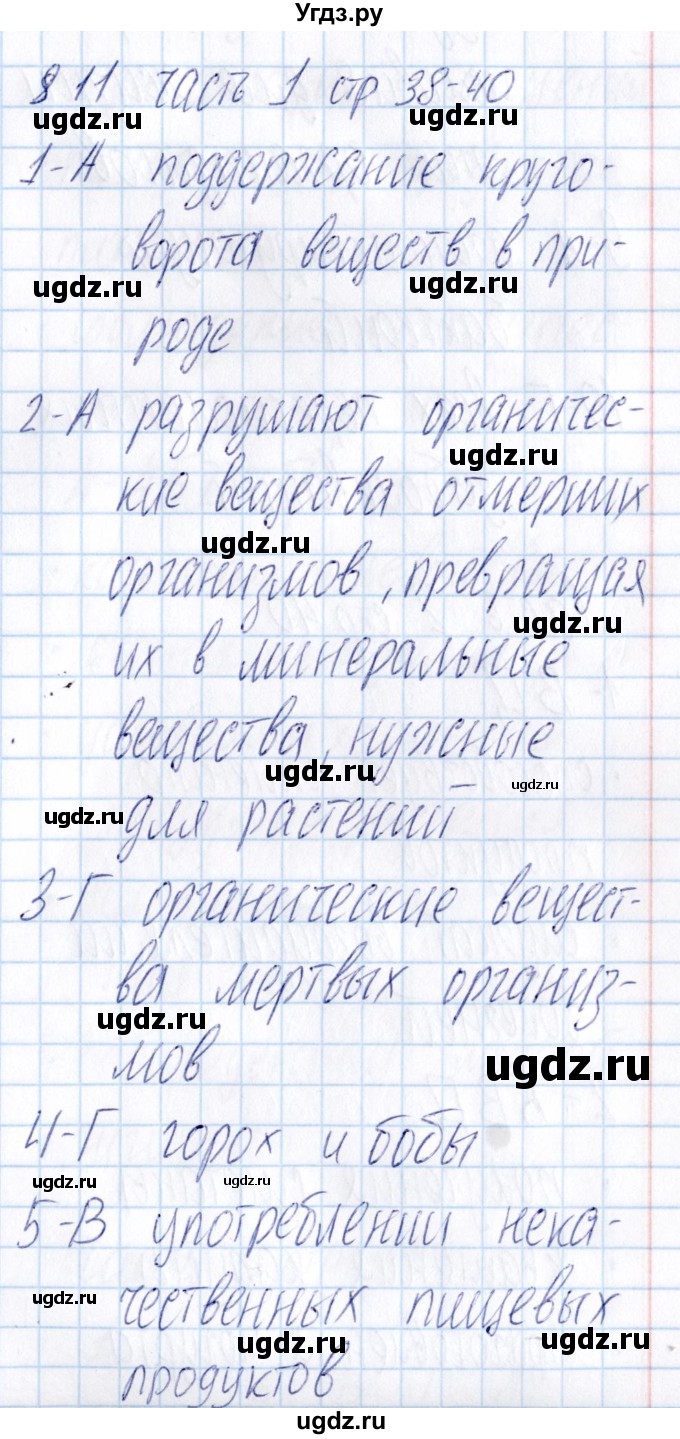 Угдз.ру
§ 11 часть 1 стр 38-40
ugdz.ru ugdz.ru
1-А поддержание круго-
ворота веществ в при-
ugdz.ru ugdz.ru
роде
2-А разрушают органичес-
ugdz.ru
кие вещества отмерших
ugdz.ru
организмов, превращая
ugdz.ru
их в минеральные
вещества, нужные
ugdz.ru ugdz.ru
ugdz.ru для растений
3-Г органические вещест-
ва мертвых организ-
ugdz.ru
мов ugdz.ru
4-Г горох и бобы
ugdz.ru ugdz.ru
5-В употреблении нека-
ugdz.ru чественных пищевых
ugdz.ru ugdz.ru
продуктов
ugdz.ru